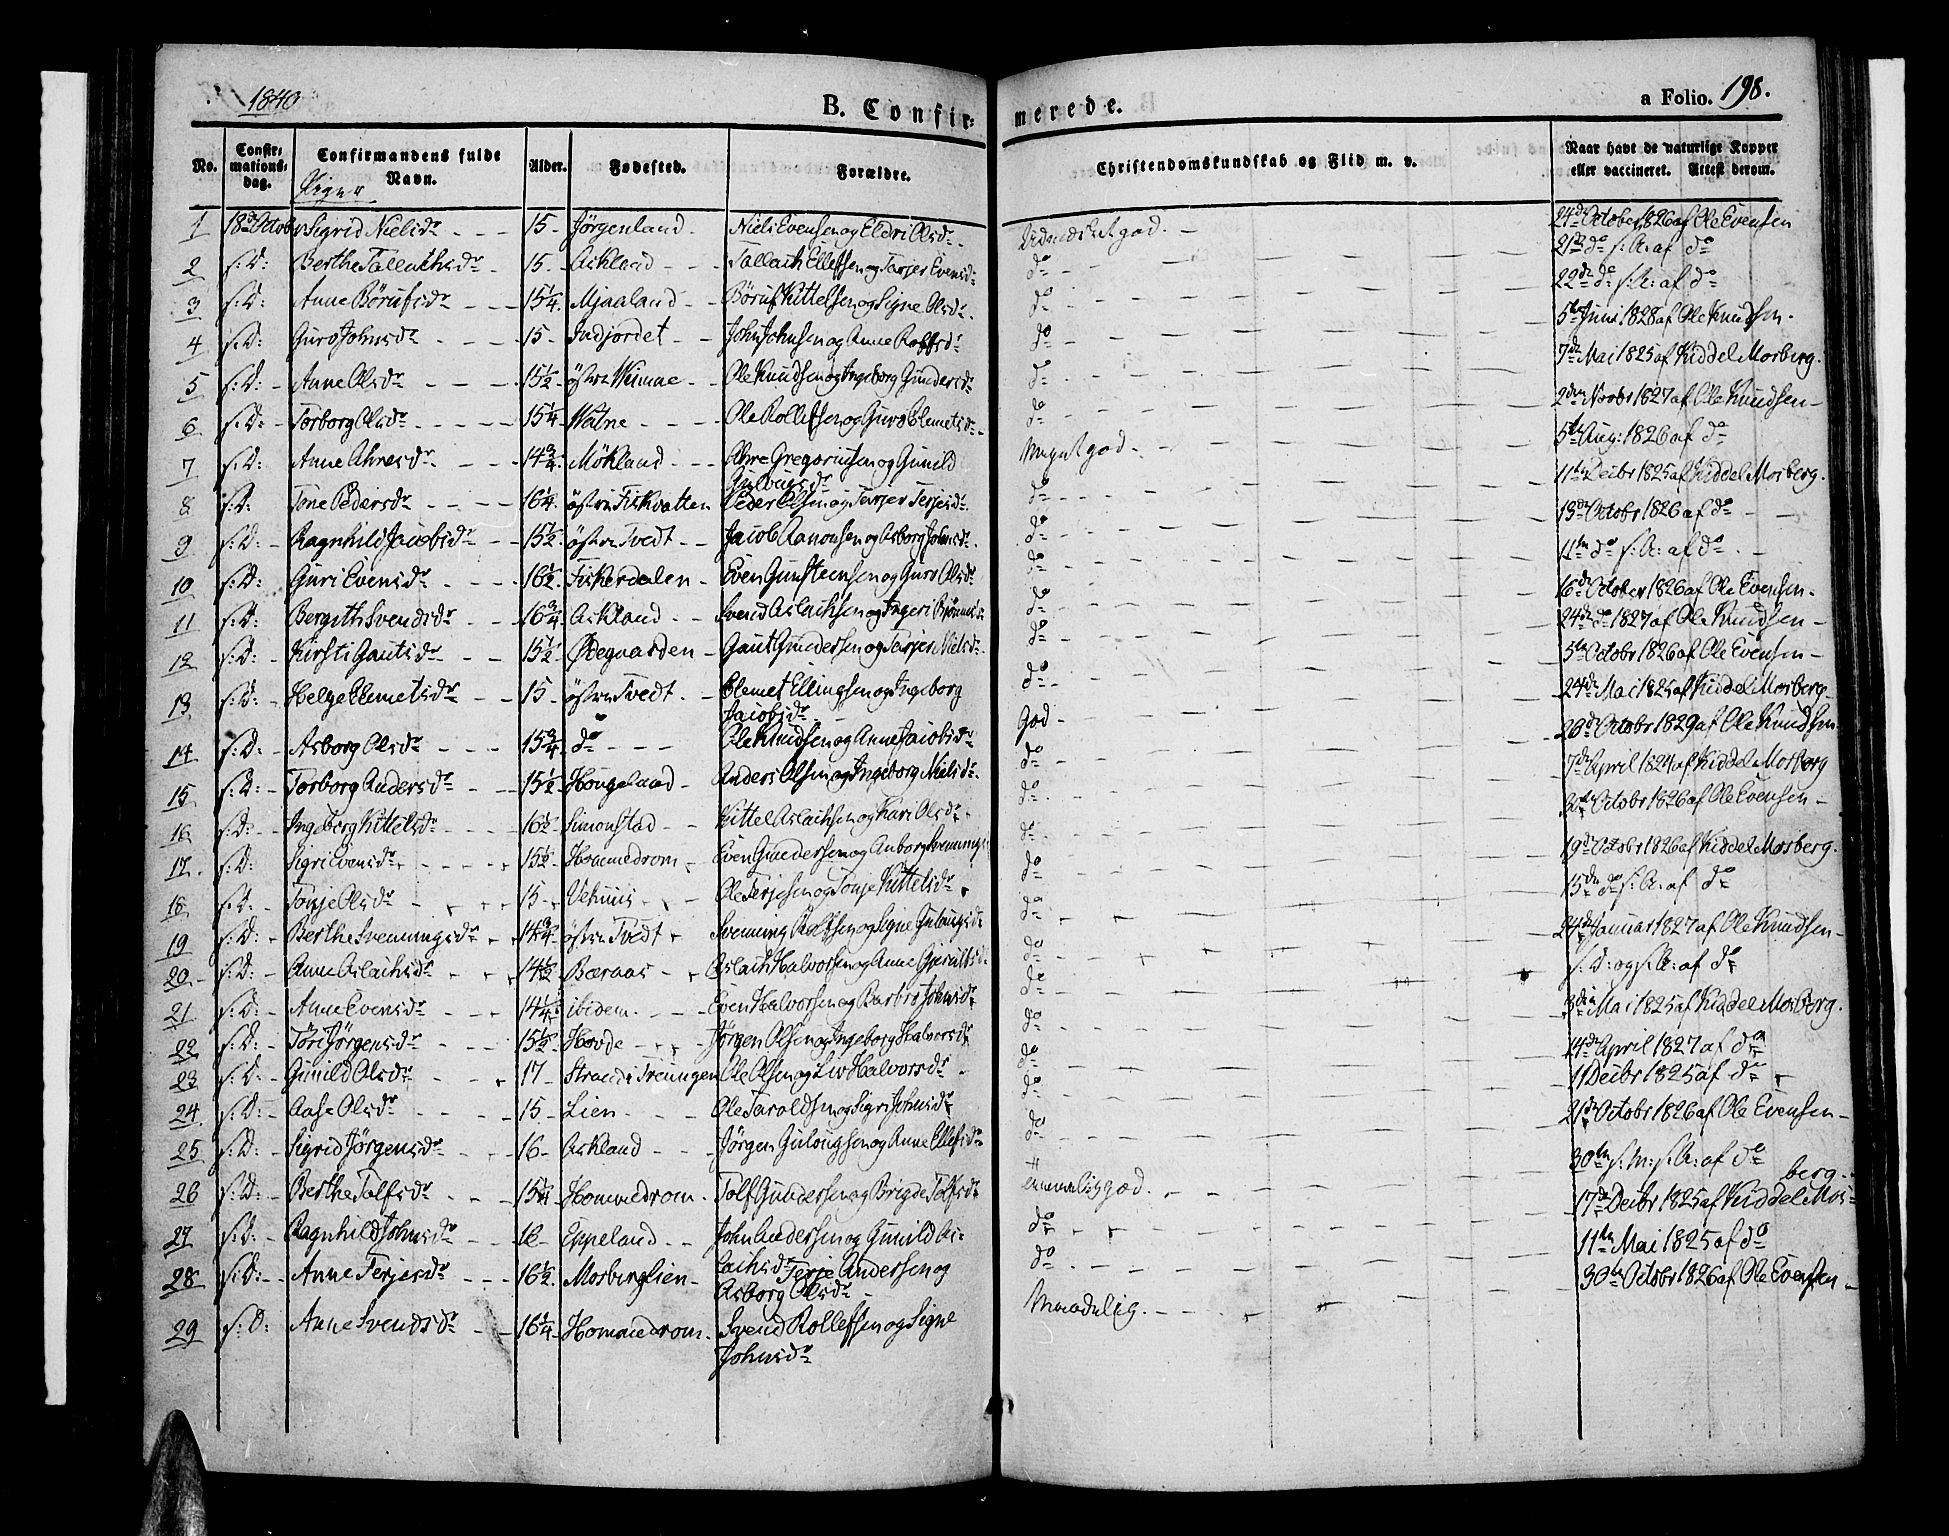 1840
B. Confirmerede.
a Folio. 198.
No. Confirmationsdag. Confirmandens fulde Navn. Alder. Fødested. Forældre. Christendomskundskab og Flid m. v. Naar havt de naturlige Kopper eller vaccineret. Attest derom.
Piger
1 18de Octobr Sigrid Nielsdr 15 Jörgenland Niels Evensen og Eldri Olsdr Udmærket god. 24de October 1826 af Ole Evensen
2 s: D: Berthe Tallachsdr 15 Askland Tallach Ellefsen og Tarjer Evensdr do 21de do s: A: af do
3 s: D: Anne Börufsdr 15 1/4 Mjaaland Böruf Kittelsen og Signe Olsdr do 22de do s: A: af do
4 s: D: Guro Johnsdr 15 Indjordet John Johnsen og Anne Rolfsdr do 5te Juni 1828 af Ole Knudsen.
5 s: D: Anne Olsdr 15 1/2 östre Wimme Ole Knudsen og Ingeborg Gundersdr do 7de Mai 1825 af Kiddel Mosberg.
6 s: D: Torborg Olsdr 15 1/4 Watne Ole Rollefsen og Guro Clemetsdr do 2den Novbr 1827 af Ole Knudsen
7 s: D: Anne Ahresdr 14 3/4 Mökland Ahre Gregoriusen og Gunild Gulougsdr Meget god. 5te Aug: 1826 af do
8 s: D: Tone Pedersdr 16 1/4 östre Fiskvatten Peder Olsen og Tarjer Terjesdr do 11te Decbr 1825 af Kiddel Mosberg.
9 s: D: Ragnhild Jacobsdr 15 1/2 östre Tvedt Jacob Aanonsen og Asborg Johnsdr do 13de Octobr 1826 af do
10 s: D: Guri Evensdr 16 1/2 Fiskerdalen Even Gunsteensen og Guro Olsdr do 11te do s: A: af do
11 s: D: Bergith Svendsdr 16 3/4 Askland Svend Aslachsen og Ingeri Bjönnesdr do 16de October 1826 af Ole Evensen.
12 s: D: Kirsti Gautsdr 15 1/2 Ödegaarden Gaut Gundersen og Tarjer Nielsdr do 24de do 1827 af Ole Knudsen
13 s: D: Helge Clemetsdr 15 östre Tvedt Clemet Ellingsen og Ingeborg Jacobsdr do 5te Octobr 1826 af Ole Evensen
14 s: D: Asborg Olsdr 15 3/4 do Ole Knudsen og Anne Jacobsdr God 24de Mai 1825 af Kiddel Mosberg
15 s: D: Torborg Andersdr 15 1/2 Hougeland Anders Olsen og Ingeborg Nielsdr do 26de Octobr 1829 af Ole Knudsen
16 s: D: Ingeborg Kittelsdr 16 1/2 Simonstad Kittel Aslachsen og Kari Olsdr do 7de April 1824 af Kiddel Mosberg
17. s: D: Sigri Evensdr 15 1/2 Hommedrom Even Gundersen og Anborg Svennings do Octobr 1826 af Ole Evensen
18 s: D: Tonje Olsdr 15 Vehuus Ole Terjesen og Tonje Kittelsdr do 19de Octobr 1826 af Kiddel Mosberg.
19 s: D: Berthe Svenningsdr 14 3/4 östre Tvedt Svenning Rolfsen og Signe Gulougsdr do 15de do s: A: af do
20 s: D: Anne Aslachsdr 14 1/2 Bæraas Aslach Halvorsen og Anne do 24de Januar 1827 af Ole Knudsen
21 s: D: Anne Evensdr 14 1/4 ibidem. Even Halvorsen og Barbro Johnsdr do s: D: og s: A: af do
22 s: D: Töri Jörgensdr 15 1/2 Hovde Jörgen Olsen og Ingeborg Halvorsdr do 3die Mai 1825 af Kiddel Mosberg.
23 s: D: Gunild Olsdr 17 Strand i Treungen Ole Olsen og Liv Halvorsdr do 14de April 1827 af do
24. s: D: Aase Olsdr 15 Lien Ole Taraldsen og Sigri Johnsdr do 11 Decbr 1825 af do
25 s: D: Sigrid Jörgensdr 16 Askland Jörgen Gulougsen og Anne Ellefsdr do 21de Octobr 1826 af Ole Evensen
26 s: D: Berthe Tolfsdr 15 1/4 Hommedrom Tolf Gundersen og Brigde Tolfsdr temmelig god. 30te s: M: s: A: af do
27 s: D: Ragnhild Johnsdr 16 Eppeland John Andersen og Gunild Aslachsdr do 17de Decbr 1825 af Kiddel Mosberg.
28 s: D: Anne Terjesdr 16 1/2 Mosberglien Terje Andersen og Asborg Olsdr do 11te Mai 1825 af do
29 s: D: Anne Svendsdr 16 1/4 Hommedrom. Svend Rollefsen og Signe Johnsdr Maadelig. 30te Octobr 1826 af Ole Evensen